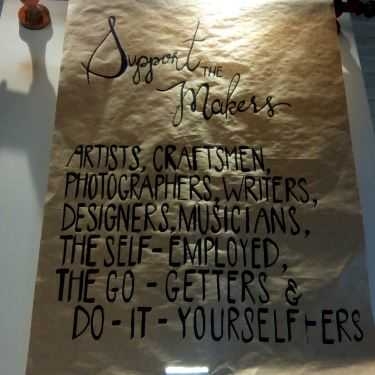 Support THE
Makers
ARTISTS, CRAFTSMEN,
PHOTOGRAPHERS, WRITERS,
DESIGNERS, MUSICIANS,
THE SELF-EMPLOYED,
THE GO-GETTERS &
DO-IT-YOURSELF-ERS